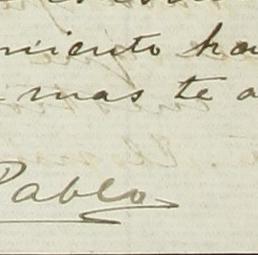 miento ha
mas te a
Pablo